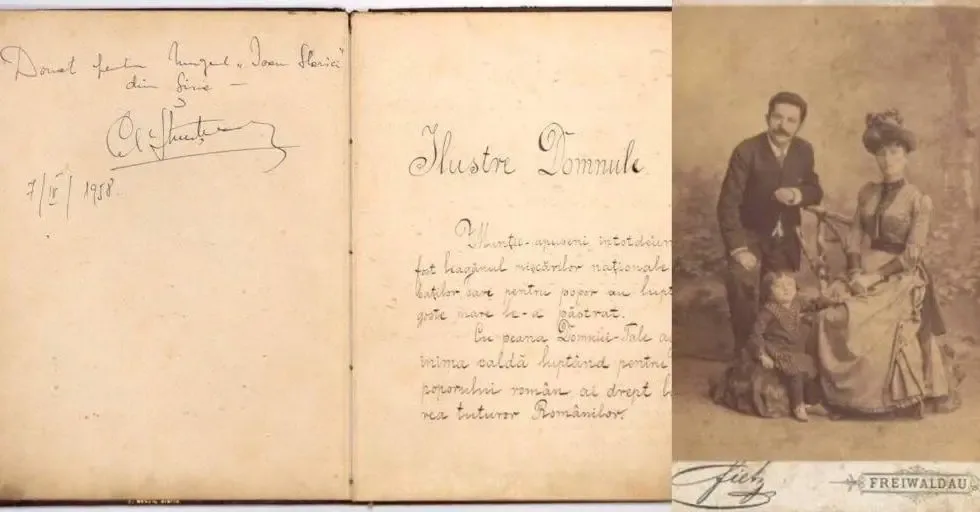 Donat pentru Muzeul „Ioan Slavici”
din Șiria —
7/IV/1958.
Ilustre Domnule
Munții-apuseni, intotdéun
fost leagănul mișcărilor naționale
baților, care pentru popor au lupt
goste mare le-a păstrat.
Cu peana Domniei-Tale a
inima caldă luptând pentru
poporului român ai drept l
rea tuturor Românilor.
Fietz
FREIWALDAU